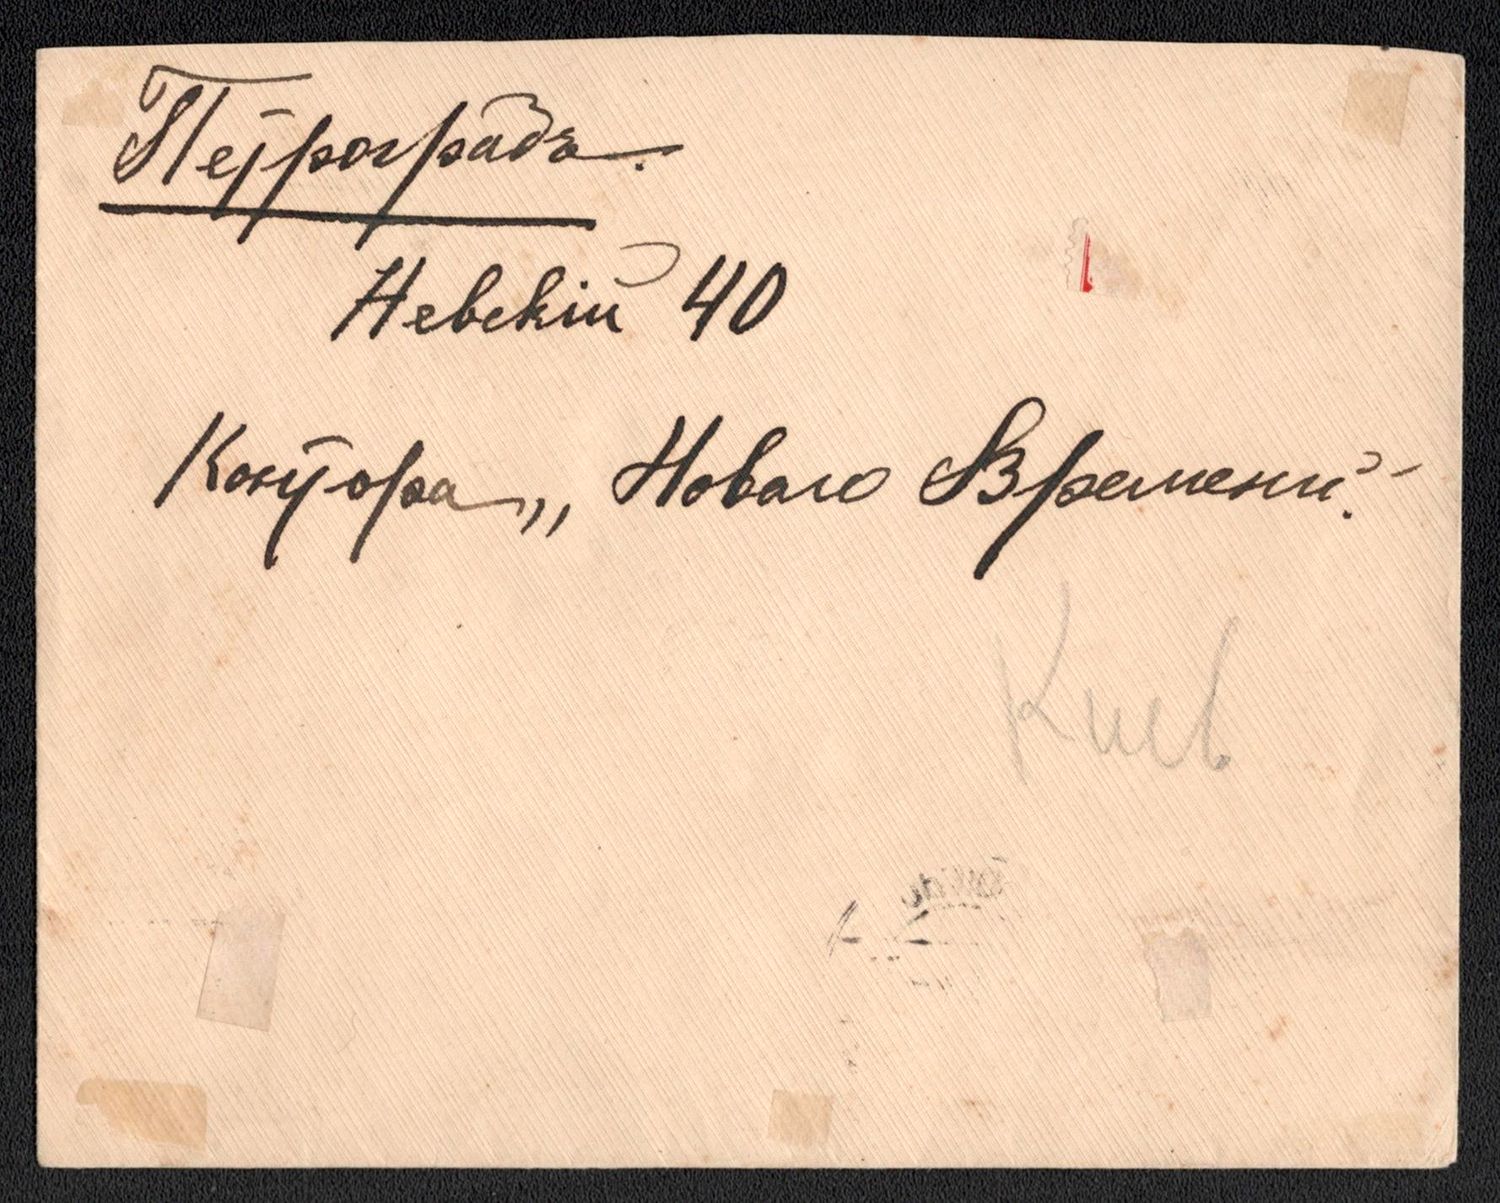 Петроградъ.
Невскій 40
Контора „Новаго Времени".
Киев